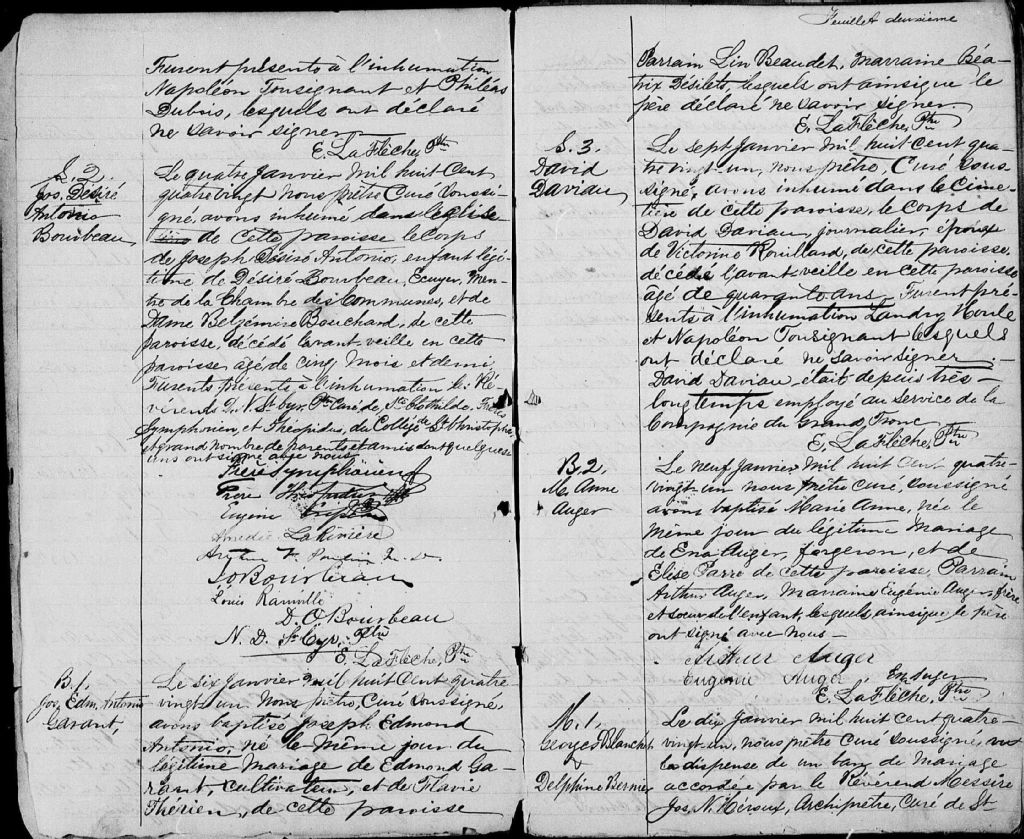 Furent présents à l'inhumation
Napoléon Tousignant et Philéas
Dubois, lesquels ont déclaré
ne savoir signer
E. LaFlèche, Ptre
S. 2.
Jos. Désiré
Antonio
Bourbeau
Le quatre janvier mil huit cent
quatre vingt nous prêtre Curé soussi
gné, avons inhumé dans l'église
de cette paroisse le corps
de Joseph Désiré Antonio, enfant légi-
time de Désiré Bourbeau, Ecuyer, Mem-
bre de la Chambre des Communes, et de
Dame Belzémire Bouchard, de cette
paroisse, décédé l'avant-veille en cette
paroisse, âgé de cinq mois et demi,
Furents présents à l'inhumation le Ré-
vérend N. D. St Cyr, Ptre Curé de Ste Clothilde, Frères
Symphorien, et Théopides, du Collège St Christophe,
et grand nombre de parents et amis dont quelques
uns ont signé avec nous
Frère Symphorien
Frère
Eugène
Amédée LaRivière
D. O Bourbeau
Louis Rainville
D. O Bourbeau
N. D. St Cyr, Ptre
E. LaFlèche, Ptre
B. 1.
Jos. Edm. Antonio
Garant,
Le six janvier mil huit cent quatre
vingt un Nous prêtre, Curé soussigné
avons baptisé Joseph Edmond
Antonio, né le même jour du
légitime mariage de Edmond Ga-
rant, cultivateur, et de Flavie
Thérien, de cette paroisse
Feuillet deuxième
Parrain Lin Beaudet, Marraine Béa-
trix Désilets, lesquels ont ainsi que le
père déclaré ne savoir signer.
E. LaFlèche, Ptre
S. 3.
David
Daviau
Le sept janvier mil huit cent qua
tre vingt-un, nous prêtre, Curé sous-
signé, avons inhumé dans le cime-
tière de cette paroisse, le corps de
David Daviau, journalier, époux
de Victorine Rouillard, de cette paroisse,
décédé l'avant-veille en cette paroisse
âgé de quarante ans. Furent pré-
sents à l'inhumation Landry Houle
et Napoléon Tousignant lesquels
ont déclaré ne savoir signer
David Daviau était depuis très-
longtemps employé au service de la
Compagnie du Grand Tronc
E. LaFlèche, Ptre
B. 2.
M. Anne
Auger
Le neuf janvier mil huit cent quatre-
vingt-un nous prêtre curé, soussigné
avons baptisé Marie Anne, née le
même jour du légitime Mariage
de Ena Auger, forgeron, et de
Elise Parré de cette paroisse, Parrain
Arthur Auger, Marraine Eugénie Auger, frère
et soeur de l'enfant, lesquels, ainsi que le père
ont signé avec nous
Arthur Auger
Eugénie Auger, Ena Auger
E. LaFlèche, Ptre
M. 1.
Georges Blanchet
&
Delphine Bernier
Le dix janvier mil huit cent quatre-
vingt-un, nous prêtre Curé soussigné, vu
la dispense de un ban de Mariage
accordée par le Révérend Messire
Jos. N. Héroux, Archiprêtre, Curé de St